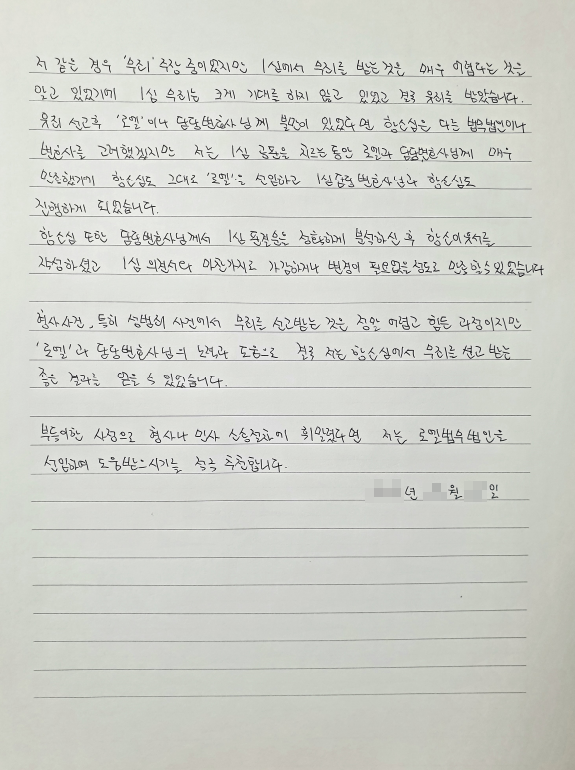 저 같은 경우 '무죄' 주장 중이었지만 1심에서 무죄를 받는것은 매우 어렵다는 것을
알고 있었기에 1심 무죄는 크게 기대를 하지 않고 있었고 결국 유죄를 받았습니다.
유죄 선고후 '로엘'이나 담당변호사님께 불만이 있었다면 항소심은 다른 법무법인이나
변호사를 고려했겠지만 저는 1심 공판을 치르는 동안 로엘과 담당변호사님께 매우
만족했기에 항소심도 그대로 '로엘'을 선임하고 1심담당 변호사님과 항소심도
진행하게 되었습니다.
항소심 또한 담당변호사님께서 1심 판결문을 정확하게 분석하신 후 항소이유서를
작성하셨고 1심 의견서와 마찬가지로 가감하거나 변경이 필요없을정도로 만족할수 있었습니다
형사사건, 특히 성범죄 사건에서 무죄를 선고받는 것은 정말 어렵고 힘든 과정이지만
'로엘'과 담당변호사님의 노력과 도움으로 결국 저는 항소심에서 무죄를 선고 받는
좋은 결과를 얻을 수 있었습니다.
부득이한 사정으로 형사나 민사 소송절차에 휘말렸다면 저는 로엘법무법인을
선임하여 도움받으시기를 적극 추천합니다.
년 월 일